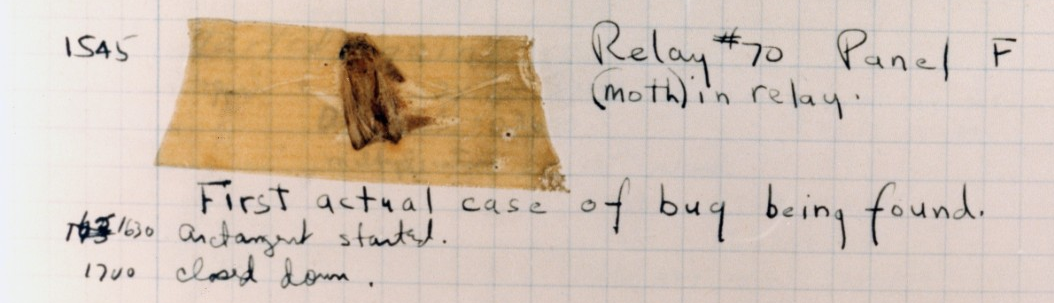 1545 Relay #70 Panel F
(moth) in relay.
First actual case of bug being found.
1630 arctangent started.
1700 closed down.